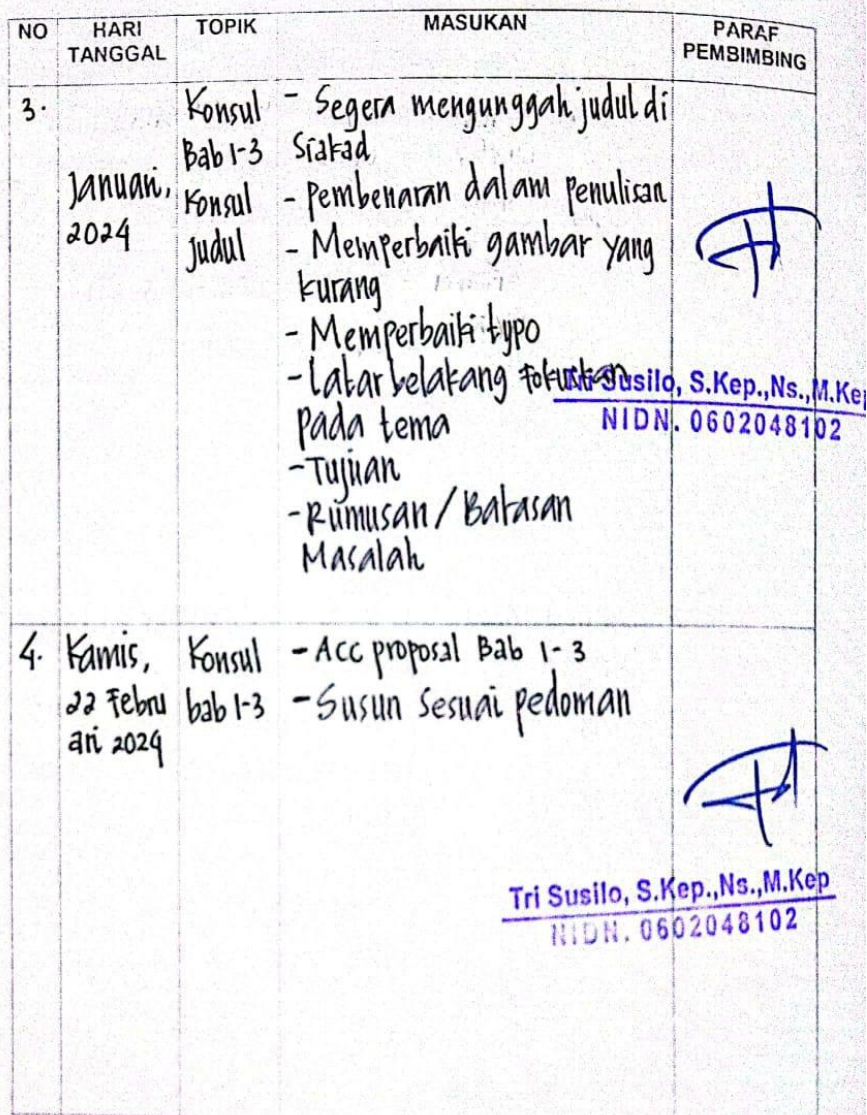 NO HARI TANGGAL TOPIK MASUKAN PARAF PEMBIMBING
3.
Januari,
2024
Konsul
Bab 1-3
Konsul
judul
- Segera mengunggah judul di
Siakad
- pembenaran dalam penulisan
- Memperbaiki gambar yang
kurang
- Memperbaiki typo
- Latar belakang Fokuskan
pada tema
- Tujuan
- Rumusan / Batasan
Masalah
Tri Susilo, S.Kep.,Ns.,M.Kep
NIDN. 0602048102
4.
Kamis,
22 Febru
ari 2024
Konsul
bab 1-3
- Acc proposal Bab 1-3
- Susun Sesuai pedoman
Tri Susilo, S.Kep.,Ns.,M.Kep
NIDN. 0602048102